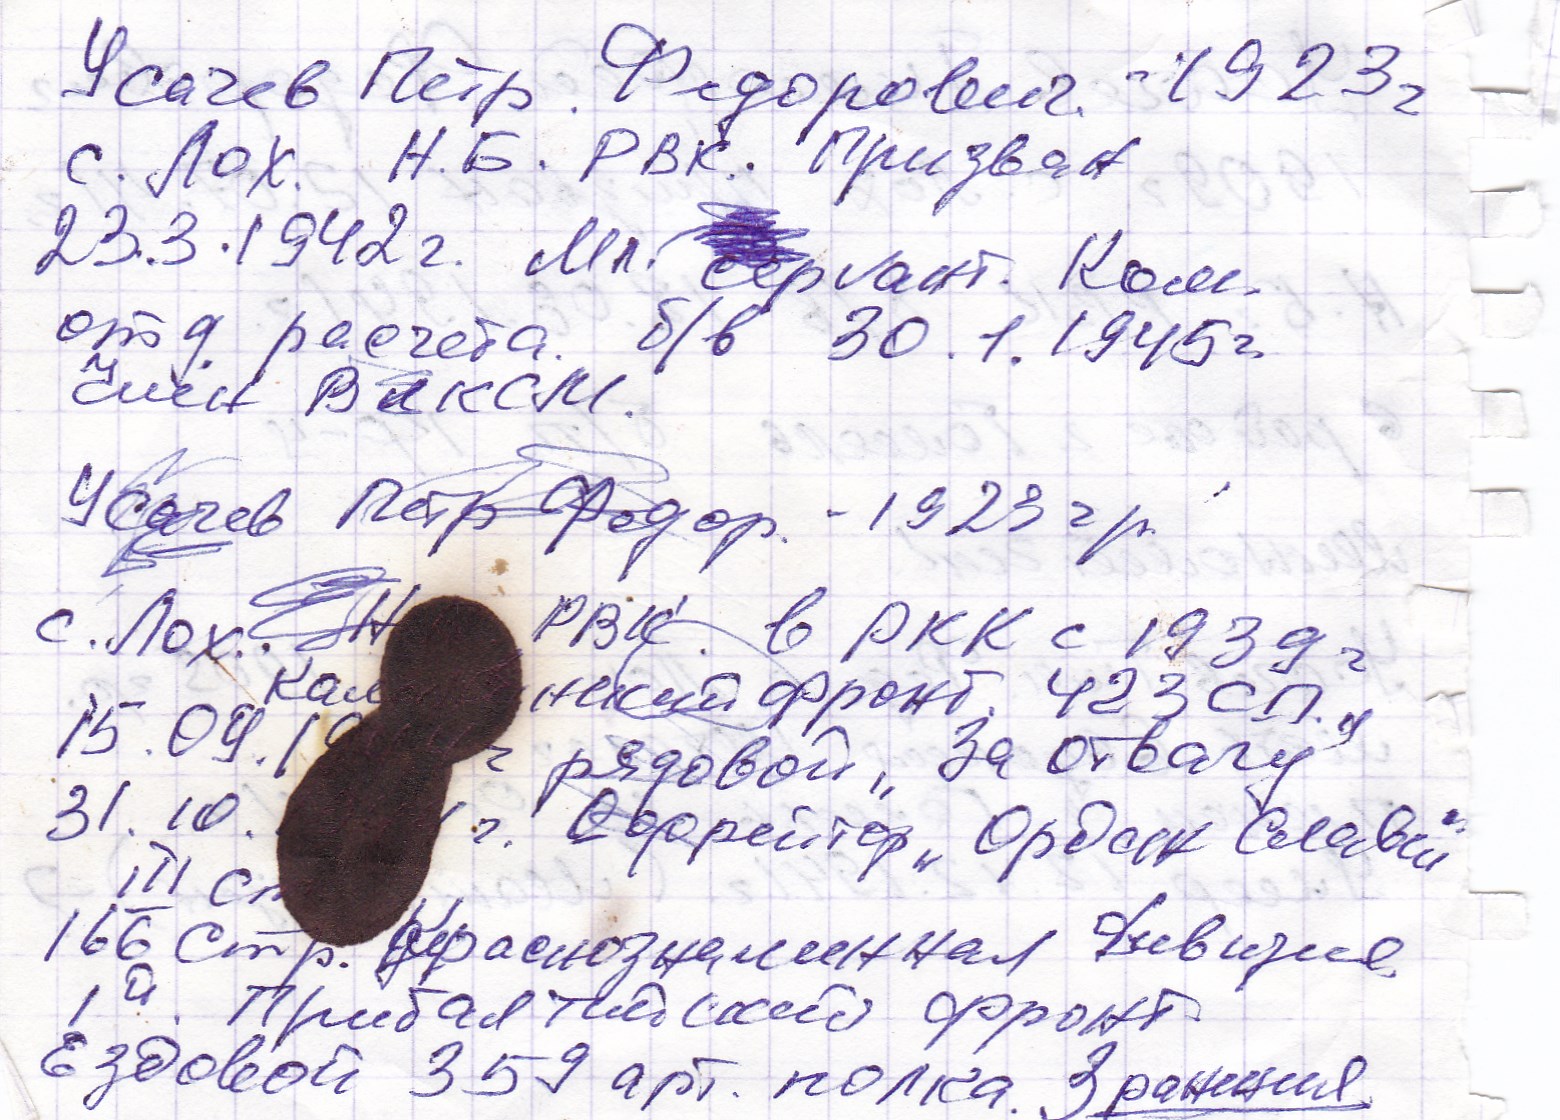 Усачев Петр Федорович - 1923г
с. Лох. Н.Б. РВК. Призван
23.3.1942г. Мл. сержант. Ком.
отд. расчета. б/в 30.1.1945г.
Член ВЛКСМ.
Усачев Петр Федор. - 1923 г/р
с. Лох. Н РВК. в РКК с 1939г
Кал нский фронт. 423 СП.
15.09.19 г рядовой „За отвагу"
31.10. г. Ефрейтор „Орден Славы"
III ст
166 Стр. Краснознаменная Дивизия
1й. Прибалтийский фронт
Ездовой 359 арт. полка. 3 ранения